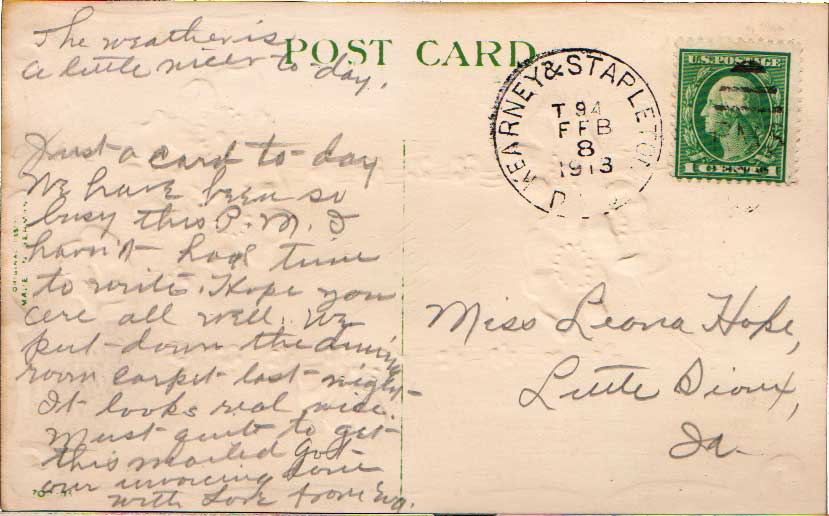 The weather is
a little nicer to-day.
POST CARD
KEARNEY & STAPLETON
T. 94
FEB
8
1913
U.S. POSTAGE
1 CENT 1
Just a card to-day
We have been so
busy this P.M. I
havn't had time
to write. Hope you
are all well. We
put down the dining
room carpet last night
It looks real nice.
Must quit to get
this mailed got
our invoicing done
with Love from
Miss Leona Hope,
Little Sioux,
Ia.